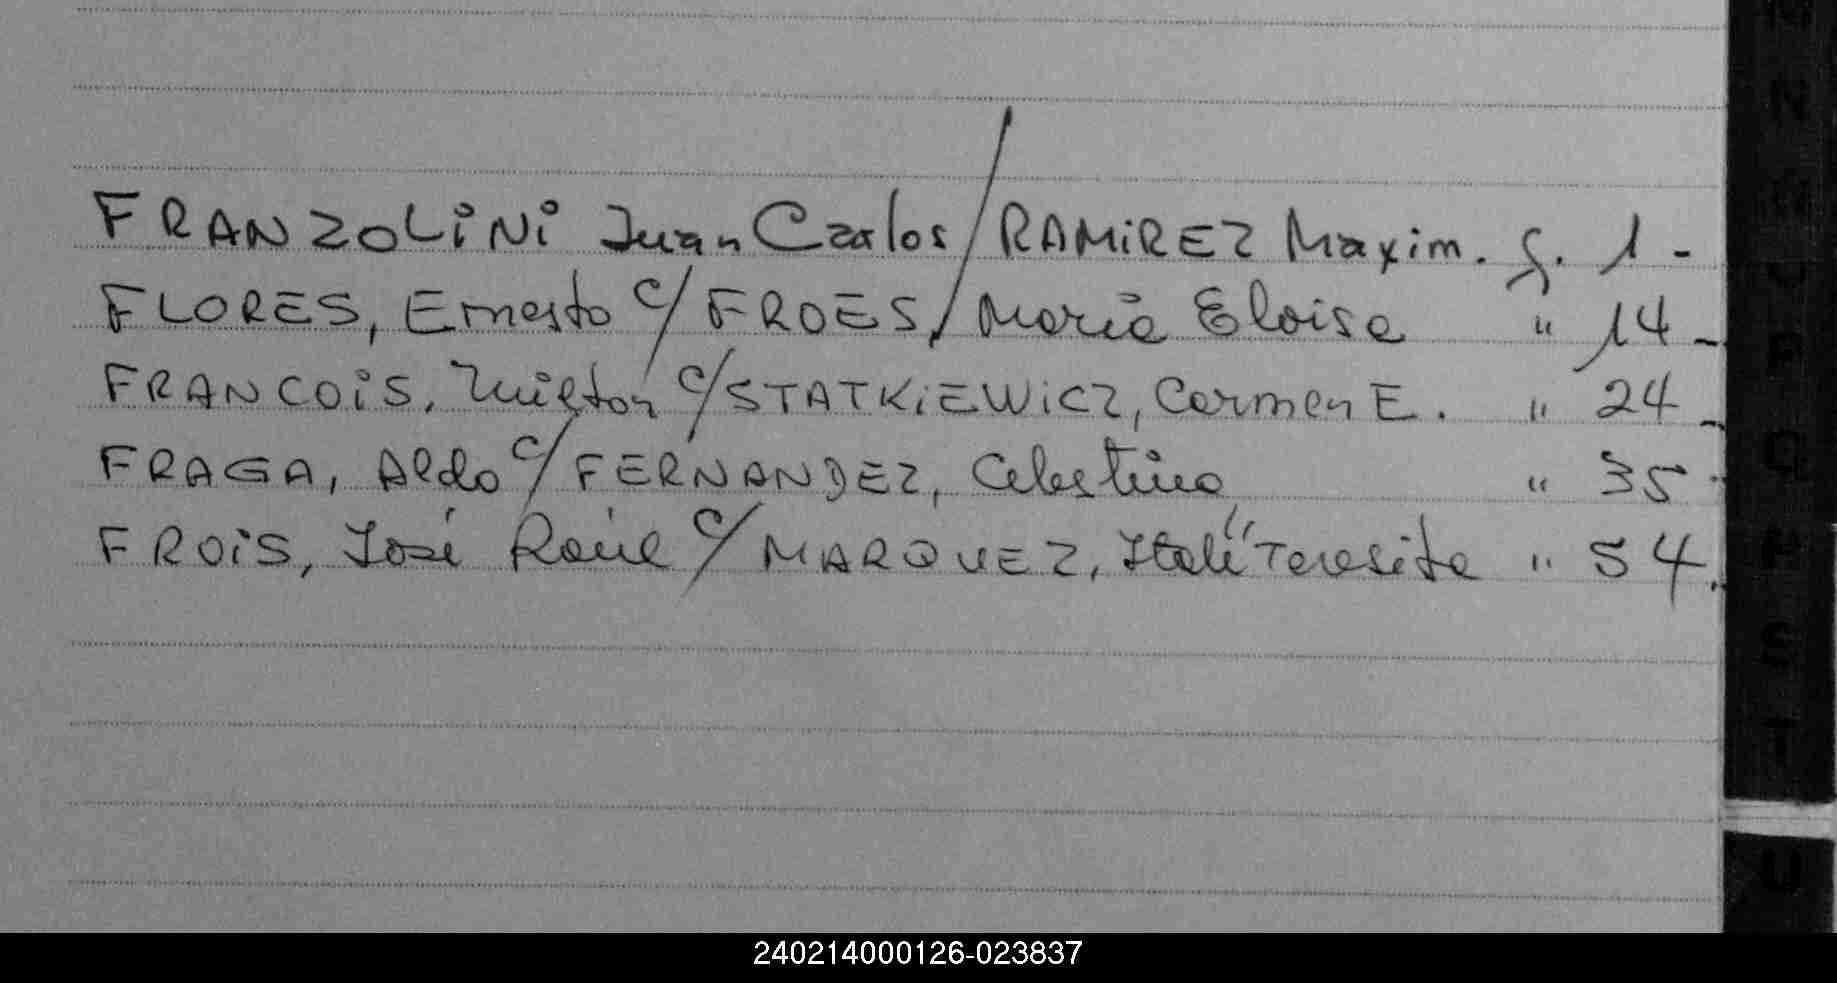 FRANZOLINI Juan Carlos / RAMIREZ Maxim. f. 1 -
FLORES, Ernesto c/ FROES, María Eloisa " 14 -
FRANCOIS, Milton c/ STATKIEWICZ, Carmen E. " 24 -
FRAGA, Aldo c/ FERNANDEZ, Celestina " 35 -
FROIS, José Raúl c/ MARQUEZ, Teresita " 54.
N
P
Q
S
T
U
240214000126-023837